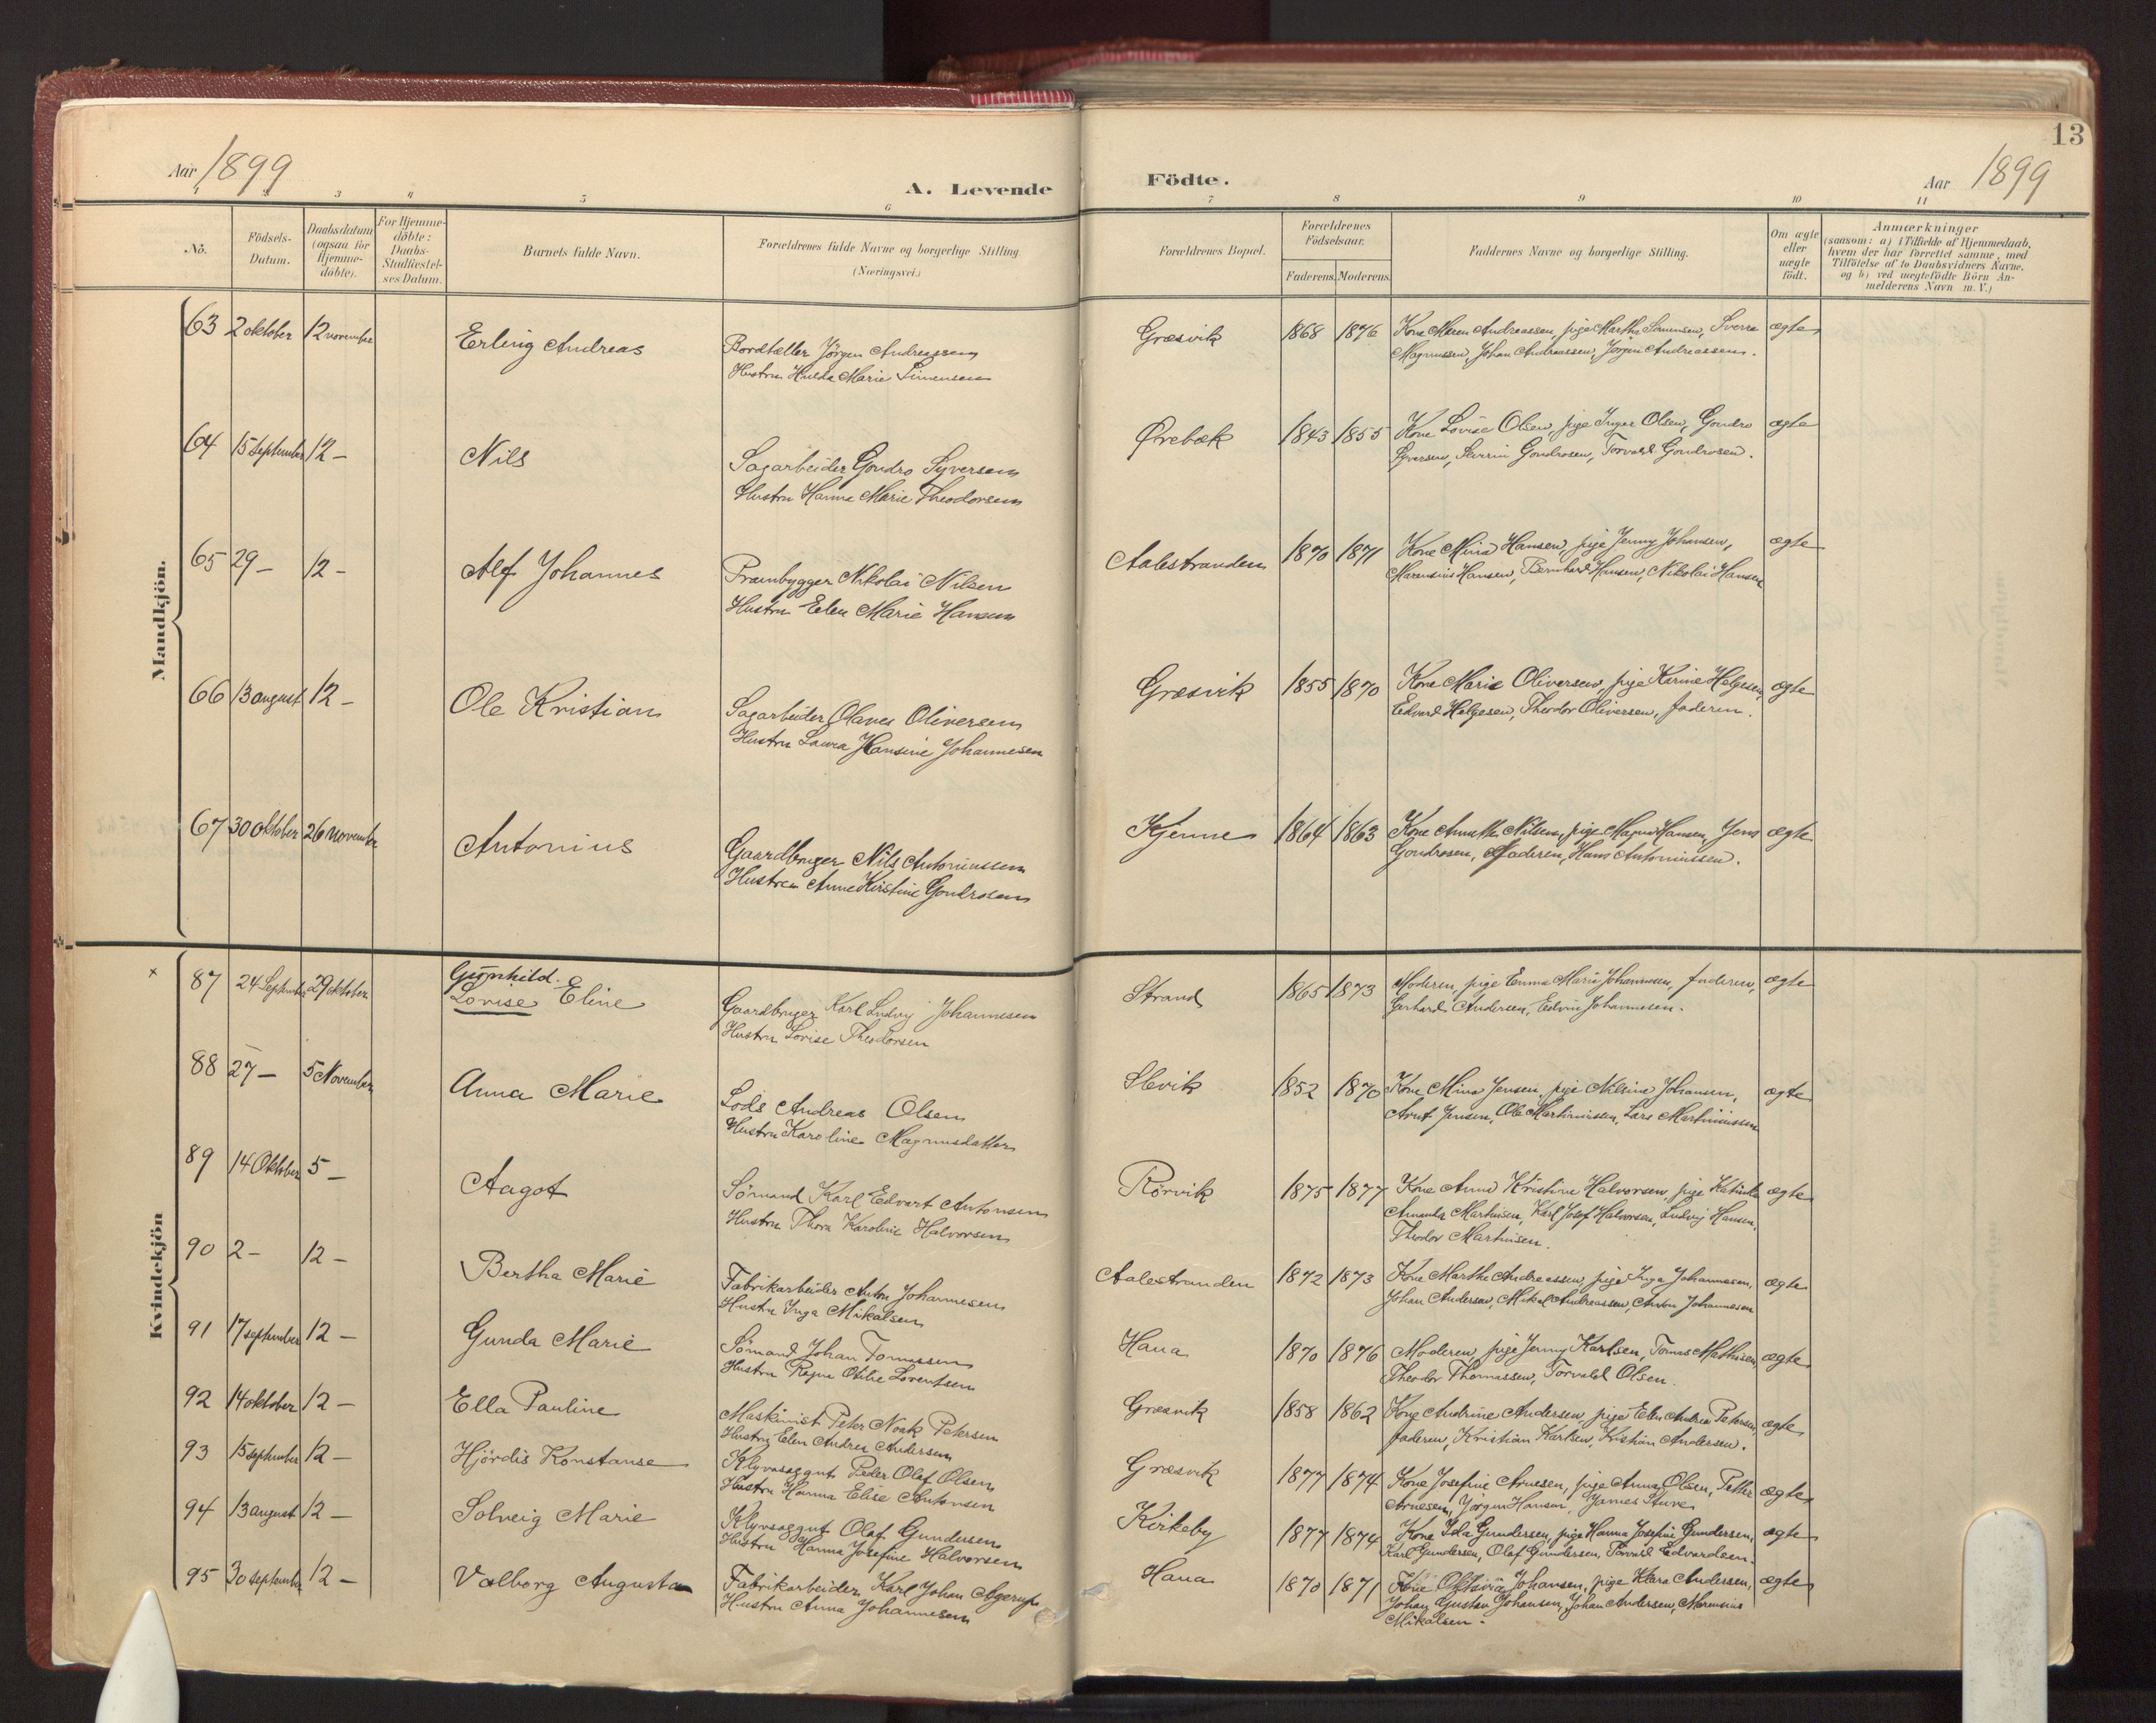 13
Aar 1899
A. Levende
Födte.
Aar 1899
1 2 3 4 5 6 7 8 9 10 11
No.
Födsels-Datum.
Daabsdatum (ogsaa for Hjemme-döbte).
For Hjemme-döbte: Daabs-Stadfæstel-ses Datum.
Barnets fulde Navn.
Forældrenes fulde Navne og borgerlige Stilling.
(Næringsvei.)
Forældrenes Bopæl.
Forældrenes Födselsaar.
Faderens. Moderens.
Faddernes Navne og borgerlige Stilling.
Om ægte eller uægte födt.
Anmærkninger
(saasom: a) i Tilfælde af Hjemmedaab,
hvem der har forrettet samme, med
Tilföielse af to Daabsvidners Navne.
og b) ved uægtefödte Börn An-
melderens Navn m.V.)
Mandkjön.
63 2 oktober 12 november Erling Andreas
Bordtæller Jörgen Andreassen
Hustru Hulda Marie Simensen
Græsvik 1868 1876
Kone Maren Andreassen, pige Marthe Simensen, Sverre
Magnussen, Johan Andreassen, Jörgen Andreassen.
ægte
64 15 September 12 – Nils
Sagarbeider Gondro Syversen
Hustru Hanna Marie Theodorsen
Ørebæk 1843 1855
Kone Lovise Olsen, pige Inger Olsen, Gondro
Syversen, Severin Gondrosen, Torvald Gondrosen.
ægte
65 29 – 12 – Alf Johannes
Prambygger Nikolai Nilsen
Hustru Elen Marie Hansen
Aalestranden 1870 1871
Kone Mina Hansen, pige Jenny Johansen,
Marensius Hansen, Bernhard Hansen, Nikolai Hansen
ægte
66 13 august 12 – Ole Kristian
Sagarbeider Olaves Oliversen
Hustru Laura Hansine Johannesen
Græsvik 1855 1870
Kone Marie Oliversen, pige Karine Helgesen,
Edvard Helgesen, Theodor Oliversen, faderen.
ægte
67 30 Oktober 26 november Antonius
Gaardbruger Nils Antoniussen
Hustru Anne Kirstine Gondrosen
Kjenne 1864 1863
Kone Annethe Nilsen, pige Magna Hansen, Jens
Gondrosen, Faderen, Hans Antoniussen.
ægte
Kvindekjön
× 87 24 September 29 oktober Gunhild.
Lovise Eline
Gaardbruger Karl Ludvig Johannesen
Hustru Lovise Theodorsen
Strand 1865 1873
Moderen, pige Emma Marie Johannesen, faderen,
Gerhard Andersen, Edvin Johannesen.
ægte
88 27 – 5 November Anna Marie
Lods Andreas Olsen
Hustru Karoline Magnusdatter
Slevik 1852 1870
Kone Mina Jensen, pige Nilsine Johansen,
Arnt Jensen, Ole Martiniussen, Lars Martiniussen
ægte
89 14 Oktober 5 – Aagot
Sömand Karl Edvart Antonsen
Hustru Thora Karoline Halvorsen
Rörvik 1875 1877
Kone Anna Kristine Halvorsen, pige Katinka
Amanda Martinsen, Karl Josef Halvorsen, Ludvig Hansen,
Theodor Martinsen.
ægte
90 2 – 12 – Bertha Marie
Fabrikarbeider Anton Johannesen
Hustru Inga Mikalsen
Aalestranden 1872 1873
Kone Marthe Andreassen, pige Inga Johannesen,
Johan Andersen, Mikal Andreassen, Anton Johannesen
ægte
91 17 september 12 – Gunda Marie
Sömand Johan Tomassen
Hustru Ragna Otilie Lorentsen
Hana 1870 1876
Moderen, pige Jenny Karlsen, Tomas Mathisen,
Theodor Thomassen, Torvald Olsen.
ægte
92 14 oktober 12 – Ella Pauline
Maskinist Peter Noak Petersen
Hustru Elen Andrea Andersen
Græsvik 1858 1862
Kone Andrine Andersen, pige Elen Andrea Petersen,
faderen, Kristian Karlsen, Kristian Andersen.
ægte
93 15 september 12 – Hjördis Konstanse
Klyvesaggut Peder Olaf Olsen
Hustru Hanna Elise Antonsen
Græsvik 1877 1874
Kone Josefine Arnesen, pige Anna Olsen, Petter
Arnesen, Jörgen Hansen, James Stuve
ægte
94 13 august 12 – Solveig Marie
Klyvesaggut Olaf Gundersen
Hustru Hanna Josefine Halvorsen
Kirkeby 1877 1874
Kone Ida Gundersen, pige Hanna Josefine Gundersen,
Karl Gundersen, Olaf Gundersen, Torvald Edvardsen.
ægte
95 30 september 12 – Valborg Augusta
Fabrikarbeider Karl Johan Agerup
Hustru Anna Johannesen
Hana 1870 1871
Kone Oktavia Johansen, pige Klara Andersen,
Johan Gustav Johansen, Johan Andersen, Marensius
Mikalsen.
ægte